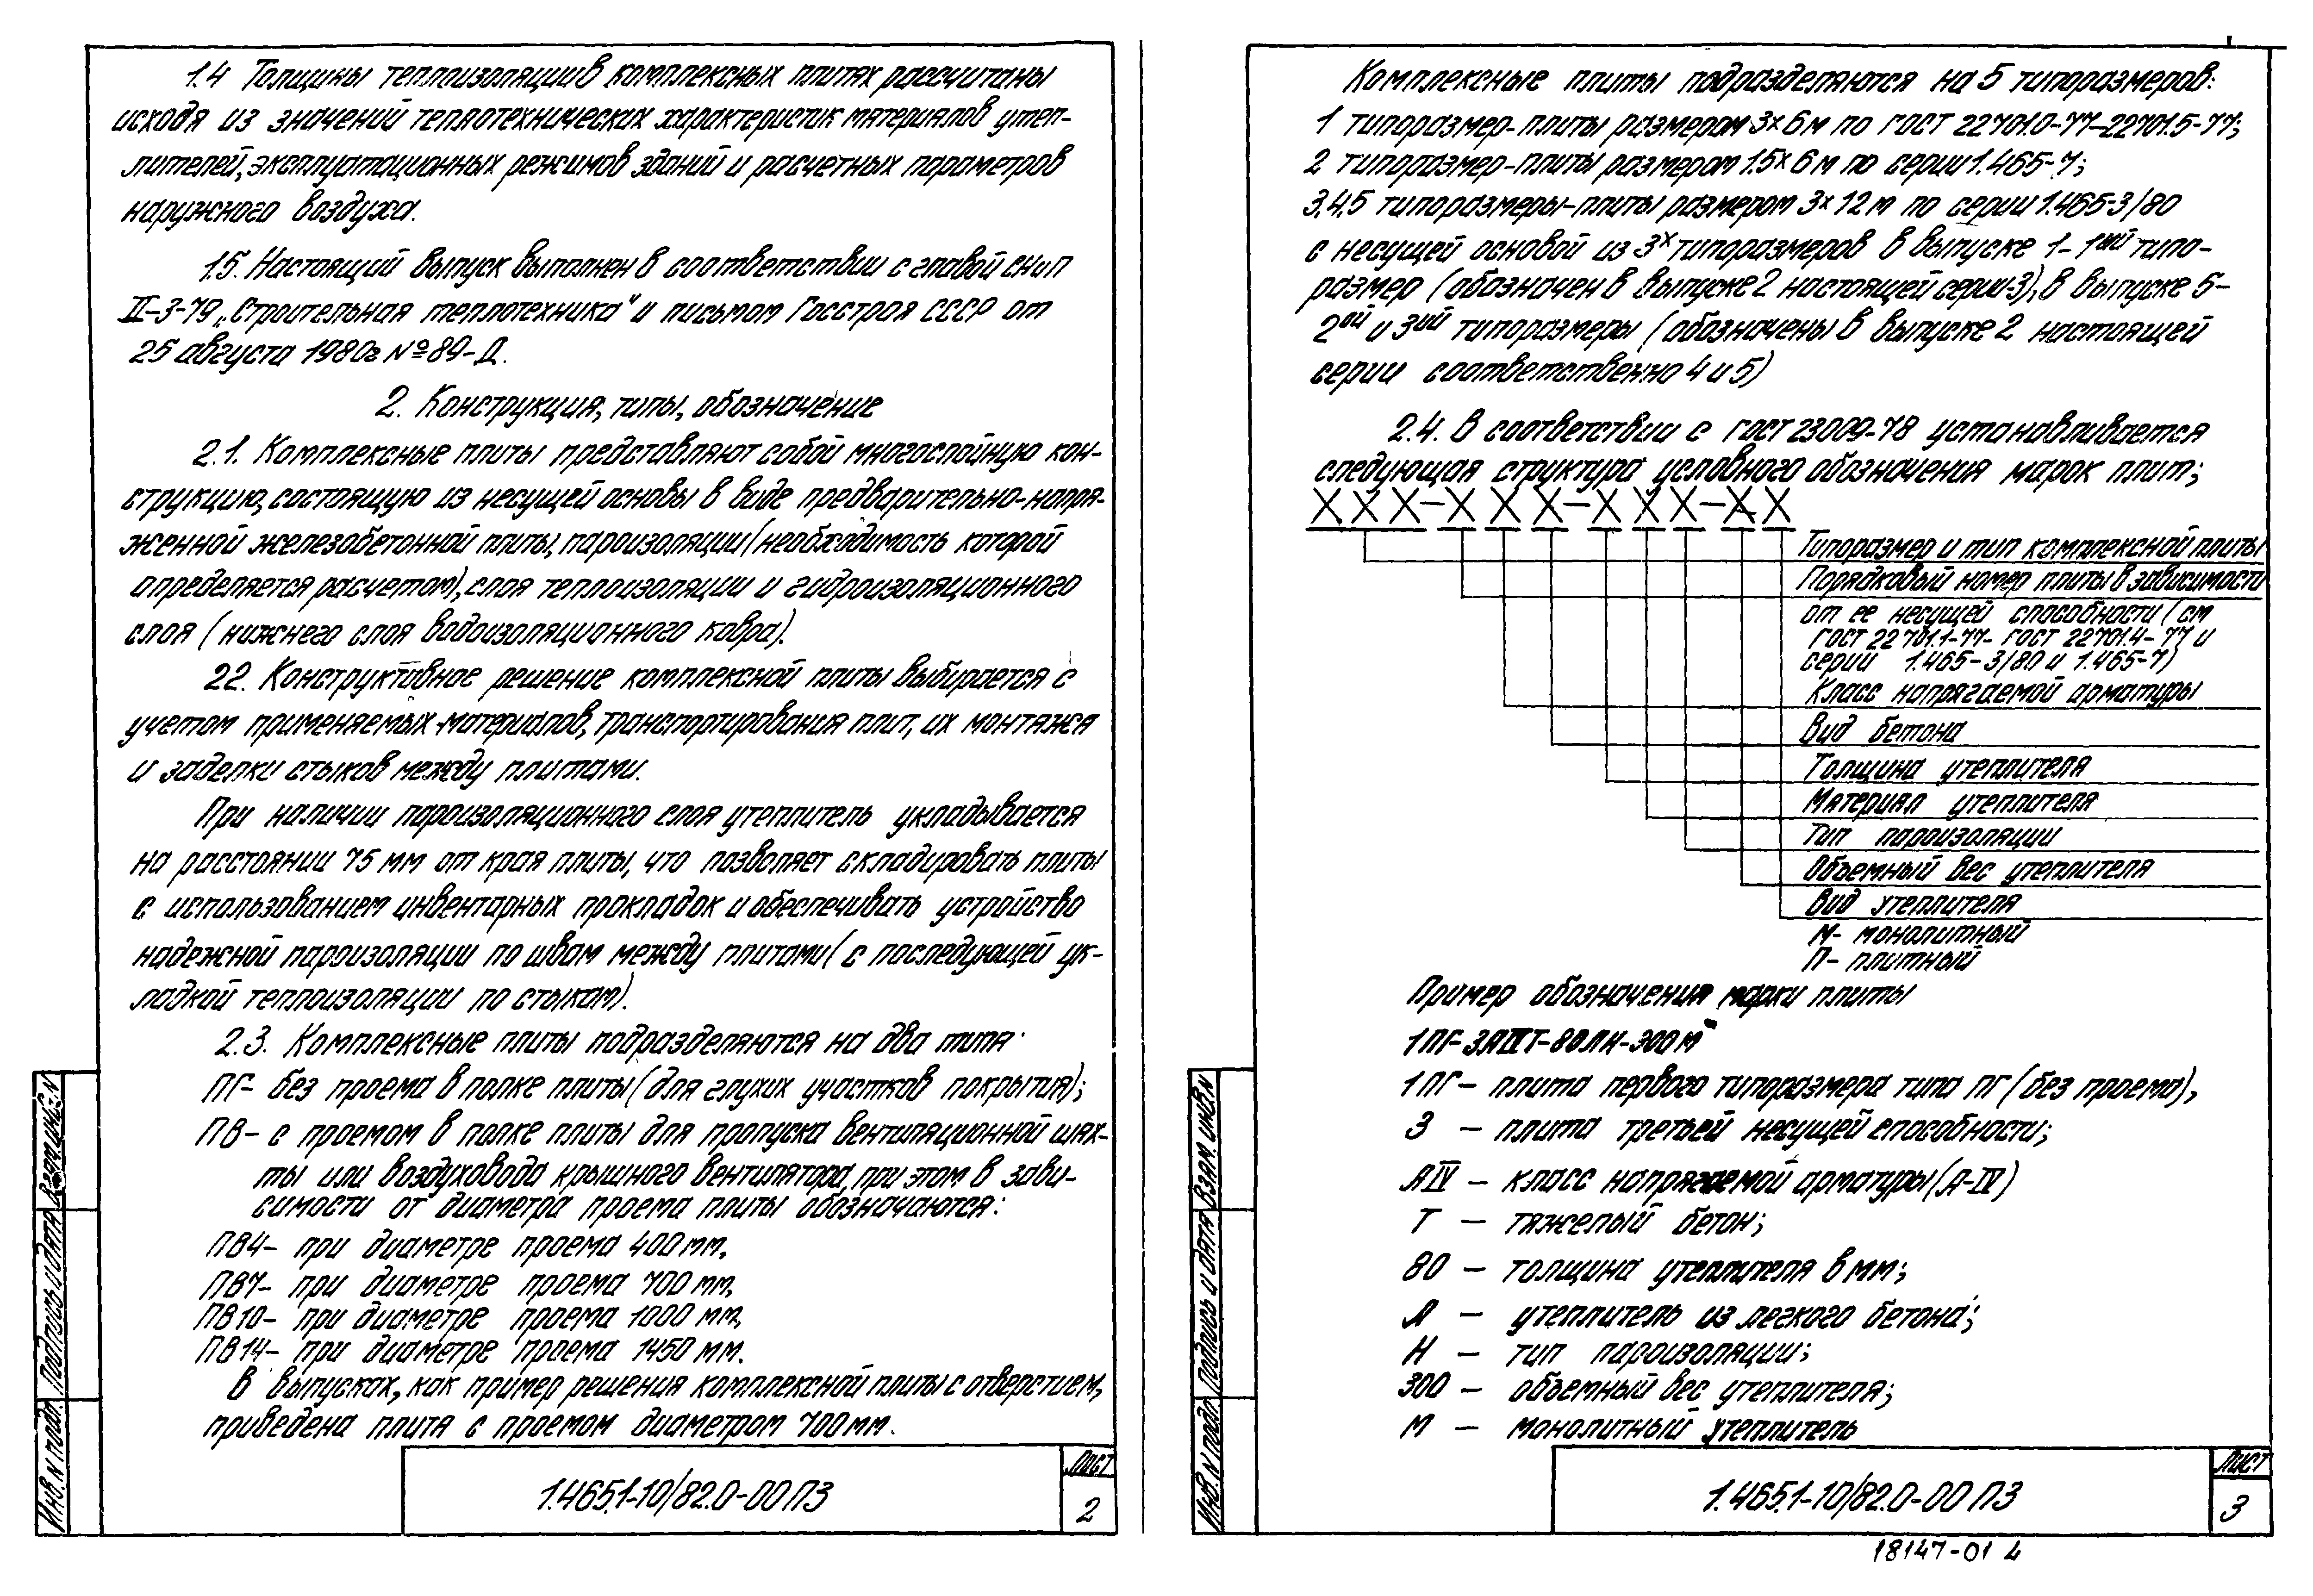 1.4 Толщины теплоизоляции в комплексных плитах рассчитаны
исходя из значений теплотехнических характеристик материалов утеп-
лителей, эксплуатационных режимов зданий и расчетных параметров
наружного воздуха.
1.5. Настоящий выпуск выполнен в соответствии с главой СНиП
II-3-79 „Строительная теплотехника" и письмом Госстроя СССР от
25 августа 1980г №89-Д.
2. Конструкция, типы, обозначение
2.1. Комплексные плиты представляют собой многослойную кон-
струкцию, состоящую из несущей основы в виде предварительно-напря-
женной железобетонной плиты, пароизоляции (необходимость которой
определяется расчетом), слоя теплоизоляции и гидроизоляционного
слоя (нижнего слоя водоизоляционного ковра).
2.2. Конструктивное решение комплексной плиты выбирается с
учетом применяемых материалов, транспортирования плит, их монтажа
и заделки стыков между плитами.
При наличии пароизоляционного слоя утеплитель укладывается
на расстоянии 75 мм от края плиты, что позволяет складировать плиты
с использованием инвентарных прокладок и обеспечивать устройство
надежной пароизоляции по швам между плитами (с последующей ук-
ладкой теплоизоляции по стыкам).
2.3. Комплексные плиты подразделяются на два типа:
ПГ- без проема в полке плиты (для глухих участков покрытия);
ПВ- с проемом в полке плиты для пропуска вентиляционной шах-
ты или воздуховода крышного вентилятора, при этом в зави-
симости от диаметра проема плиты обозначаются:
ПВ4- при диаметре проема 400 мм,
ПВ7- при диаметре проема 700 мм,
ПВ10- при диаметре проема 1000 мм,
ПВ14- при диаметре проема 1450 мм.
В выпусках, как пример решения комплексной плиты с отверстием,
приведена плита с проемом диаметром 700 мм.
Взам. инв. N
Подпись и дата
Инв. N подл.
1.465.1-10/82.0-00 ПЗ
Лист
2
Комплексные плиты подразделяются на 5 типоразмеров:
1 типоразмер-плиты размером 3×6 м по ГОСТ 22701.0-77-22701.5-77;
2 типоразмер-плиты размером 1.5×6 м по серии 1.465-7;
3,4,5 типоразмеры-плиты размером 3×12 м по серии 1.465-3/80
с несущей основой из 3х типоразмеров в выпуске 1-1ый типо-
размер (обозначен в выпуске 2 настоящей серии-3), в выпуске 5-
2ой и 3ий типоразмеры (обозначены в выпуске 2 настоящей
серии соответственно 4 и 5)
2.4. В соответствии с ГОСТ 23009-78 устанавливается
следующая структура условного обозначения марок плит;
XXX-XXX-XXX-XX
Типоразмер и тип комплексной плиты
Порядковый номер плиты в зависимости
от ее несущей способности (см
ГОСТ 22701.1-77- ГОСТ 22701.4-77 и
серии 1.465-3/80 и 1.465-7)
Класс напрягаемой арматуры
Вид бетона
Толщина утеплителя
Материал утеплителя
Тип пароизоляции
Объемный вес утеплителя
Вид утеплителя
М- монолитный
П- плитный
Пример обозначения марки плиты
1ПГ-3АIIIТ-80ЛН-300М
1ПГ- плита первого типоразмера типа ПГ (без проема),
3 - плита третьей несущей способности;
АIV - класс напрягаемой арматуры (А-IV)
Т - тяжелый бетон;
80 - толщина утеплителя в мм;
Л - утеплитель из легкого бетона;
Н - тип пароизоляции;
300 - объемный вес утеплителя;
М - монолитный утеплитель
Взам. инв. N
Подпись и дата
Инв. N подл.
1.465.1-10/82.0-00 ПЗ
Лист
3
18147-01 4